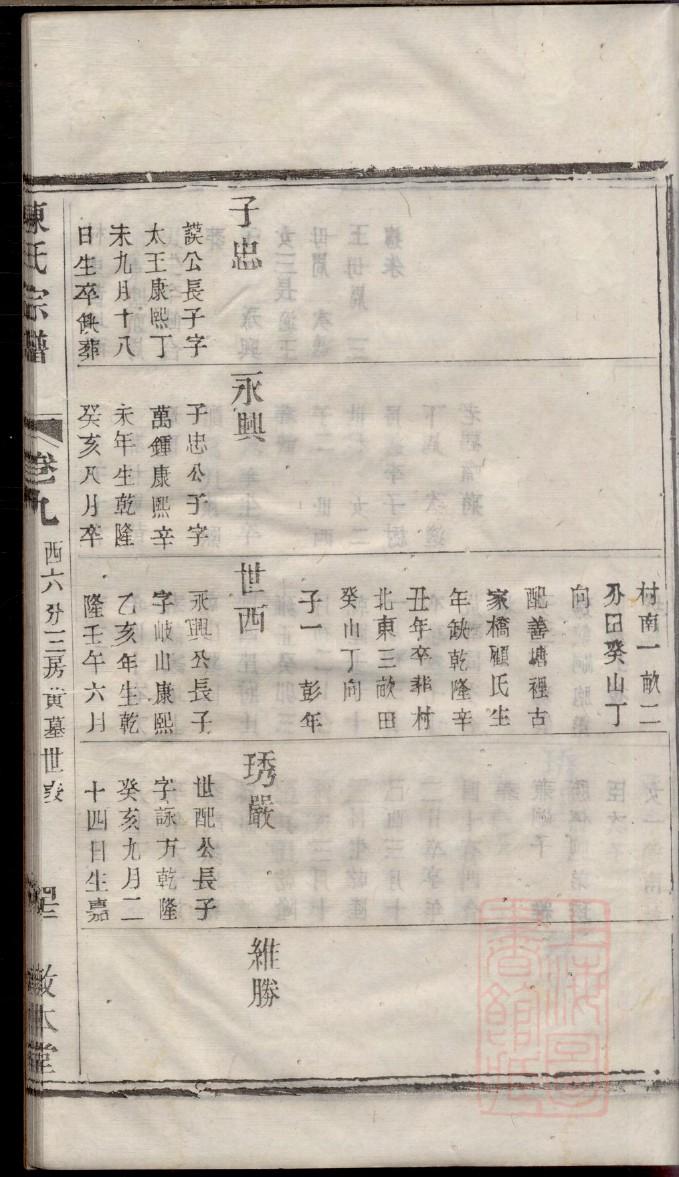 子忠
謨公長子字
太王康熙丁
未九月十八
日生卒缺葬
永興
子忠公子字
萬鍾康熙辛
未年生乾隆
癸亥八月卒
村南一畝二
分田癸山丁
向
配善塘裡古
家橋顧氏生
年缺乾隆辛
丑年卒葬村
北東三畝田
癸山丁向
子一 彭年
世西
永興公長子
字岐山康熙
乙亥年生乾
隆壬午六月
琇嚴
世配公長子
字詠万乾隆
癸亥九月二
十四日生嘉
維勝
陳氏宗譜
卷九
西六分三房黃墓世表
敦本堂